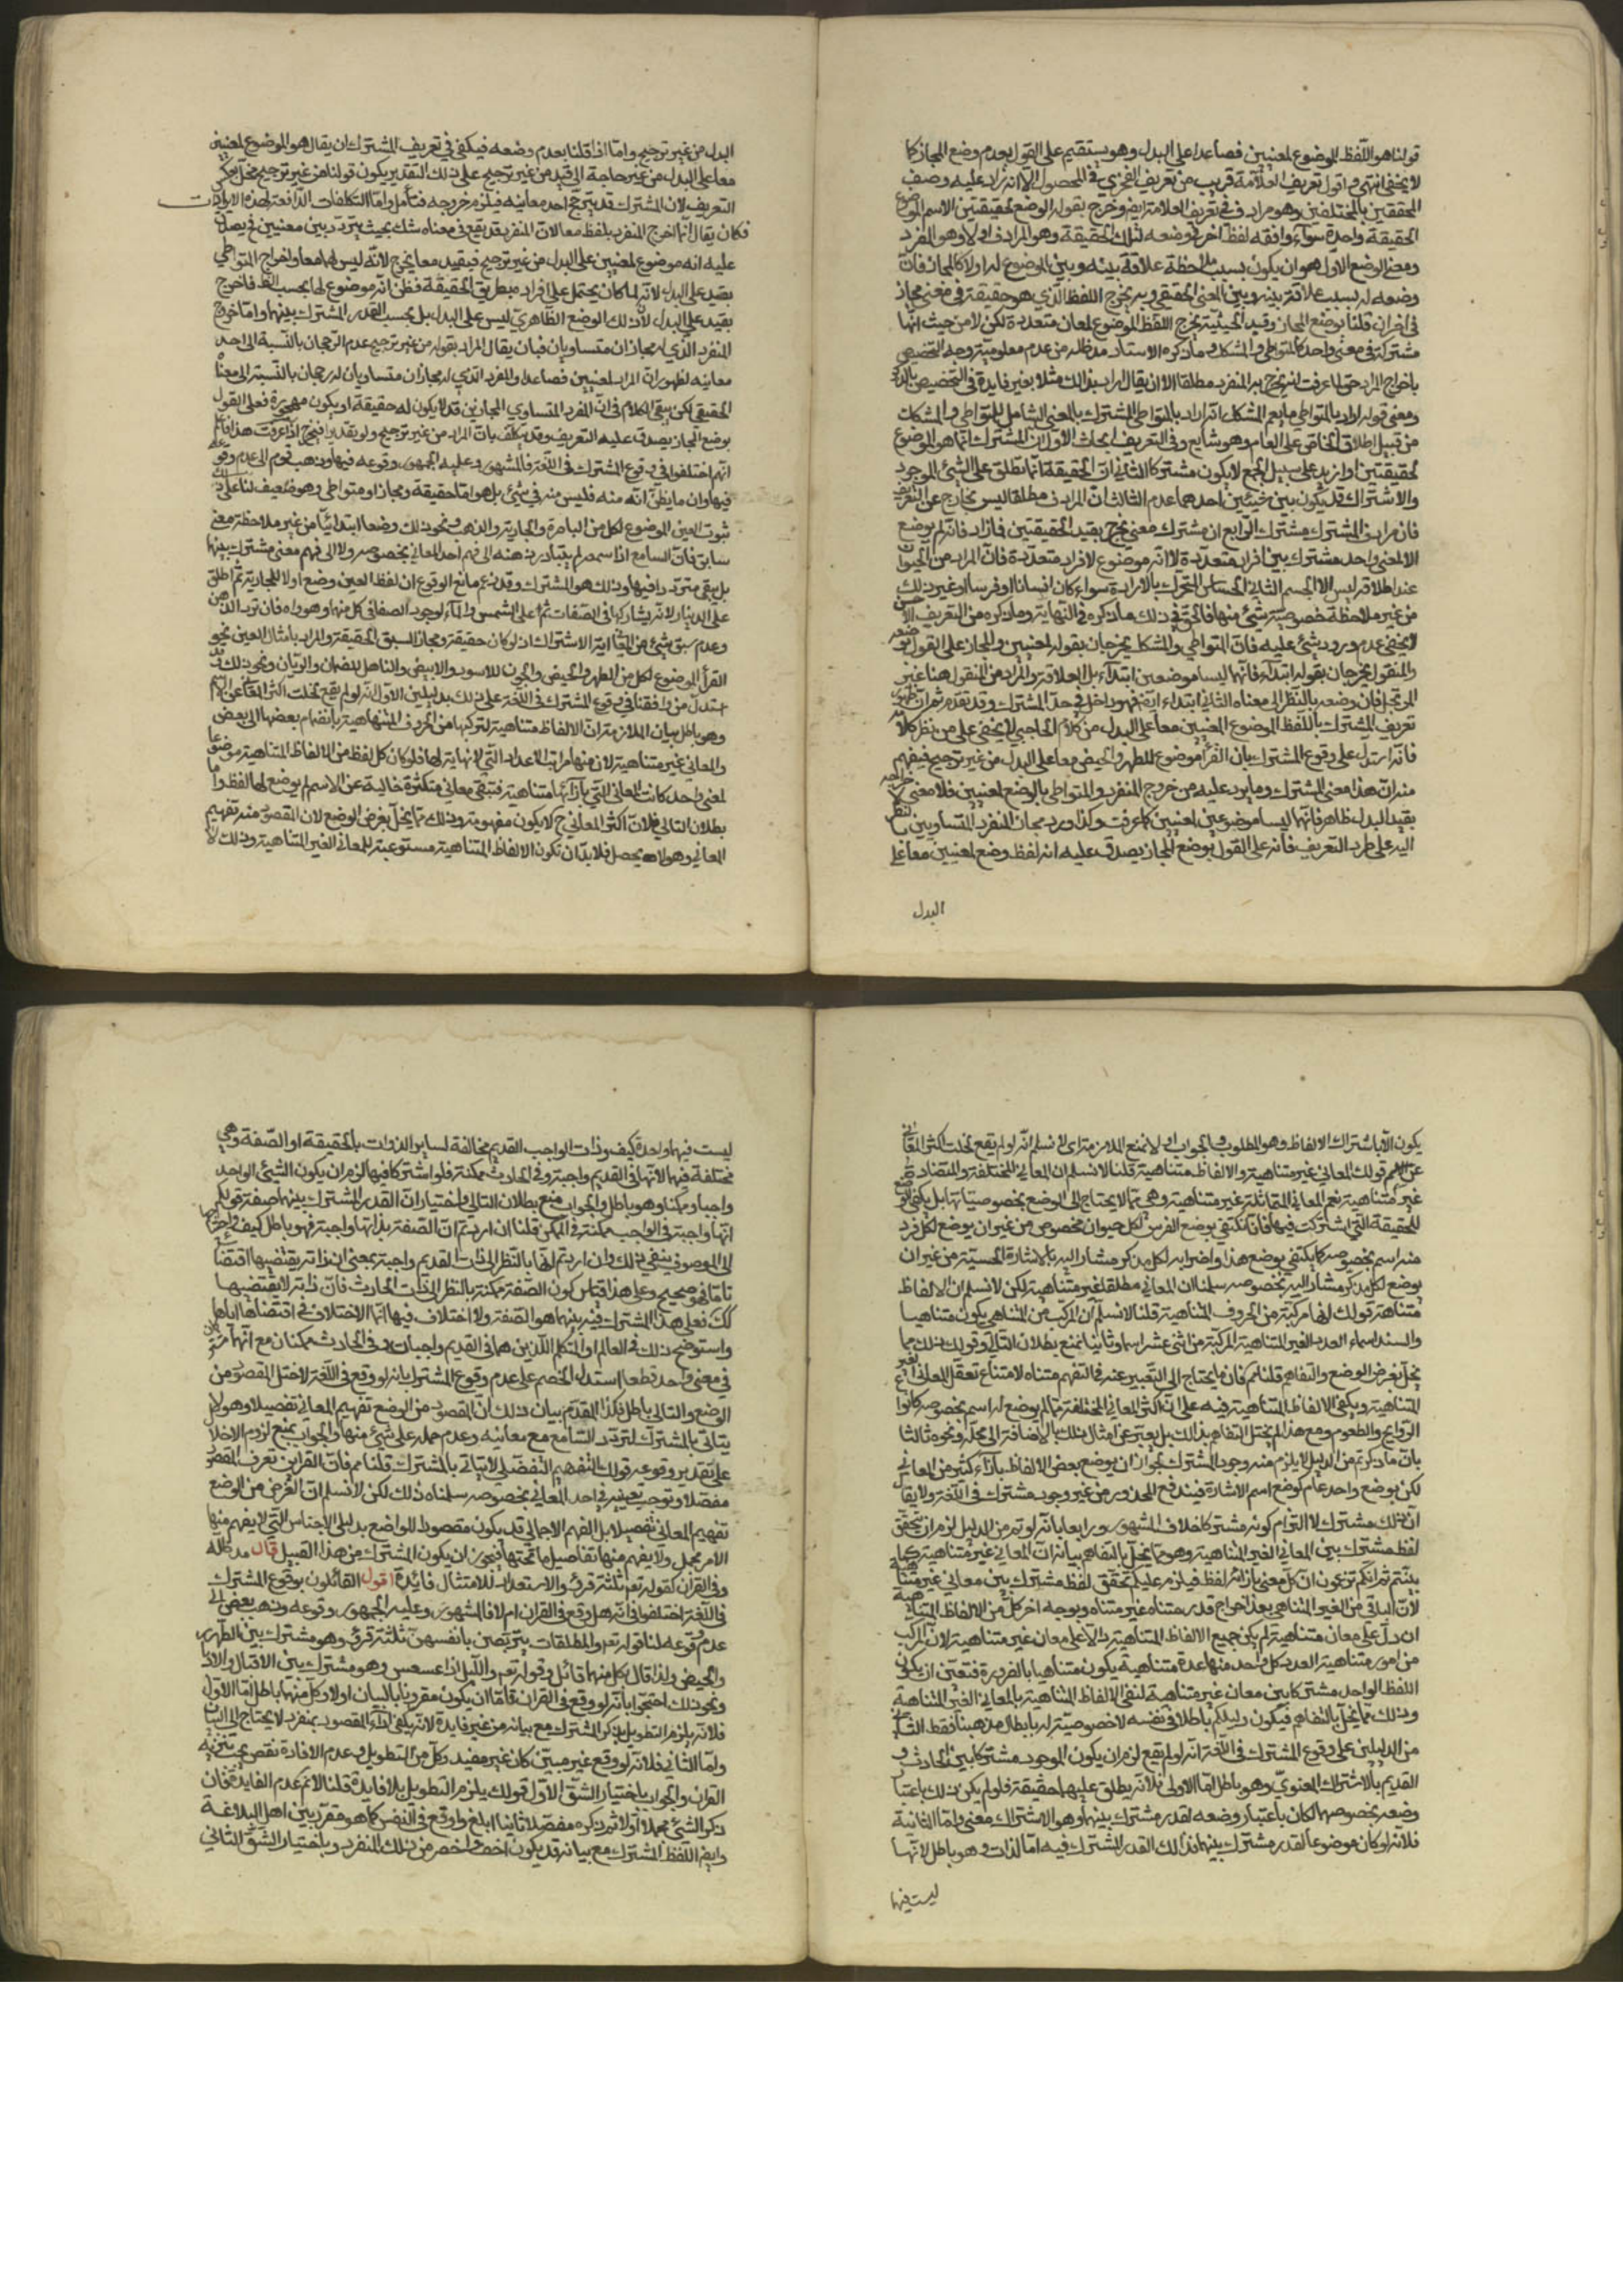 قولنا هو اللفظ الموضوع لمعنيين فصاعدا على البدل وهو يستقيم على القول بعدم وضع المجاز كما
لا يخفى انتهى اقول تعريف العلامة قريب من تعريف الفخري في المحصول الا انه زاد عليه وصف
الحقيقتين بالمختلفتين وهو مراد في تعريف العلامة ايضا وخرج بقوله الوضع لحقيقتين الاسم الموضوع
الحقيقة واحدة سواء وافقه لفظ آخر في وضعه لتلك الحقيقة وهو المرادف او لا وهو المفرد
ومعنى الوضع الاول هو ان يكون بسبب ملاحظة علاقة بينه وبين الموضوع له اولا كالمجاز فان
وضعه له بسبب علاقة بينه وبين المعنى الحقيقي وبه يخرج اللفظ الذي هو حقيقة في معنى مجاز
في اخر ان قلنا بوضع المجاز وقيد الحيثية يخرج اللفظ الموضوع لمعان متعددة لكن لا من حيث انها
مشتركة في معنى واحد كالمتواطي والمشكك وما ذكره الاستاد مد ظله من عدم معلومية وجه التخصيص
باخراج المراد حق لما عرفت انه يخرج به المنفرد مطلقا الا ان يقال اراد بذلك مثلا بغير فايدة في التخصيص بالذكر
ومعنى قوله اراد بالمتواطي ما يعم المشكك انه اراد بالمتواطي المشترك بالمعنى الشامل للمتواطي والمشكك
من قبيل اطلاق الخاص على العام وهو شايع وفي التعريف ابحاث الاول ان المشترك انما هو الموضوع
لحقيقتين او ازيد على سبيل الجمع لا يكون مشتركا الثاني ان الحقيقة انما تطلق على الشيء الموجود
والاشتراك قد يكون بين شيئين احدهما عدم الثالث ان المرادف مطلقا ليس بخارج عن التعريف
فان مرادف المشترك مشترك الرابع ان مشترك معنى يخرج بقيد الحقيقتين فما زاد فانه لم يوضع
الا لمعنى واحد مشترك بين افراد متعددة لا انه موضوع لافراد متعددة فان المراد من الحيوان
عند اطلاقه ليس الا الجسم النامي الحساس المتحرك بالارادة سواء كان انسانا او فرسا او غير ذلك
من غير ملاحظة خصوصية شيء منها فالحق في ذلك ما ذكره في النهاية وما ذكره من التعريف الاحسن
لا يخفى عدم ورود شيء عليه فان المتواطي والمشكك يخرجان بقوله لمعنيين والمجاز على القول بوضعه
والمنقول يخرجان بقوله ابتداء فانهما ليسا موضوعين ابتداء بل لعلاقة والمراد من المنقول هنا غير
المرتجل فان وضعه بالنظر الى معناه الثاني ابتداء ايضا فهو داخل في حد المشترك وقد تقدم ثم ان ظهور
تعريف المشترك باللفظ الموضوع لمعنيين معا على البدل من كلام الحاجبي لا يخفى على من نظر كلامه
فانه استدل على وقوع المشترك بان القرء موضوع للطهر والحيض معا على البدل من غير ترجيح فيفهم
منه ان هذا معنى المشترك وما يرد عليه من خروج المنفرد والمتواطي بالوضع لمعنيين فلا معنى لاخراجه
بقيد البدل ظاهر فانهما ليسا موضوعين لمعنيين كما عرفت وكذا ورد مجاز المنفرد المتساويين بالنظر
اليه على طرد التعريف فانه على القول بوضع المجاز يصدق عليه انه لفظ وضع لمعنيين معا على
البدل
البدل من غير ترجيح واما اذا قلنا بعدم وضعه فيكفي في تعريف المشترك ان يقال هو الموضوع لمعنيين
معا على البدل من غير حاجة الى قيد من غير ترجيح على ذلك التقدير يكون قولنا من غير ترجيح مخلا بعكس
التعريف لان المشترك قد يترجح احد معانيه فيلزم خروجه فتأمل واما التكلفات الدافعة لهذه الايرادات
فكان يقال انما خرج المنفرد بلفظ معا لان المنفرد قد يقع في معناه شك بحيث يتردد بين معنيين فيصدق
عليه انه موضوع لمعنيين على البدل من غير ترجيح فبقيد معا يخرج لانه ليس لهما معا واخراج المتواطي
بقيد على البدل لانه لما كان يحتمل على افراده بطريق الحقيقة فظن انه موضوع لها بحسب الظ فاخرج
بقيد على البدل لان ذلك الوضع الظاهري ليس على البدل بل بحسب القدر المشترك بينهما واما خروج
المنفرد الذي له مجازان متساويان فبان يقال المراد بقوله من غير ترجيح عدم الرجحان بالنسبة الى احد
معانيه لظهور ان المراد لمعنيين فصاعدا والمفرد الذي له مجازان متساويان له رجحان بالنسبة الى معناه
الحقيقي لكن يبقى الكلام في ان المفرد المتساوي المجازين قد لا يكون له حقيقة او يكون مهجورة فعلى القول
بوضع المجاز يصدق عليه التعريف وقد يتكلف بان المراد من غير ترجيح ولو تقديرا فيخرج اذا عرفت هذا فاعلم
انهم اختلفوا في وقوع المشترك في اللغة فالمشهور وعليه الجمهور وقوعه فيها وذهب قوم الى عدم وقوعه
فيها وان ما يظن انه منه فليس منه في شيء بل هو اما حقيقة ومجاز او متواطي وهو ضعيف لنا على ذلك
ثبوت العين الموضوع لكل من الباصرة والجارية والذهب ونحو ذلك وضعا ابتدائيا من غير ملاحظة معنى
سابق فان السامع اذا سمعه لم يتبادر ذهنه الى فهم احد المعاني بخصوصه ولا الى فهم معنى مشترك بينها
بل يبقى مترددا فيها وذلك هو المشترك وقد يمنع مانع الوقوع ان لفظ العين وضع اولا للجارية ثم اطلق
على الدينار لانه يشاركها في الصفات ثم على الشمس والماء لوجود الصفا في كل منهما وهو واه فان تردد الذهن
وعدم سبق شيء من المعاني اية الاشتراك اذ لو كان حقيقة ومجازا لسبق الحقيقة والمراد بامثال العين نحو
القرء الموضوع لكل من الطهر والحيض والجون للاسود والابيض والناهل للعطشان والريان ونحو ذلك وقد
استدل من وافقنا في وقوع المشترك في اللغة على ذلك بدليلين الاول انه لو لم يقع لخلت اكثر المعاني عن الاسم
وهو باطل بيان الملازمة ان الالفاظ متناهية لتركبها من الحروف المتناهية بانضمام بعضها الى بعض
والمعاني غير متناهية لان منها مراتب الاعداد التي لا نهاية لها فلو كان كل لفظ من الالفاظ المتناهية موضوعا
لمعنى واحد كانت المعاني التي بازائها متناهية فتبقى معاني متكثرة خالية عن الاسم لم يوضع لها لفظ واما
بطلان التالي فلان اكثر المعاني ح لا يكون مفهومة وذلك مما يخل بغرض الوضع لان المقصود منه تفهيم
المعاني وهو لا يحصل فلا بد ان تكون الالفاظ المتناهية مستوعبة للمعاني الغير المتناهية وذلك لا
يكون الا باشتراك الالفاظ وهو المطلوب والجواب اولا بمنع الملازمة اي لا نسلم انه لو لم يقع لخلت اكثر المعاني
عن الاسم قولك المعاني غير متناهية والالفاظ متناهية قلنا لا نسلم ان المعاني المختلفة والمتضادة
غير متناهية نعم المعاني المتماثلة غير متناهية وهي مما لا يحتاج الى الوضع بخصوصياتها بل يكفي الوضع
للحقيقة التي اشتركت فيها فانا نكتفي بوضع الفرس لكل حيوان مخصوص من غير ان يوضع لكل فرد
منه اسم بخصوصه كما يكتفي بوضع هذا واضرابه لكل مذكر مشار اليه بالاشارة الحسية من غير ان
يوضع لكل مذكر مشار اليه بخصوصه سلمنا ان المعاني مطلقا غير متناهية لكن لا نسلم ان الالفاظ
متناهية قولك لانها مركبة من الحروف المتناهية قلنا لا نسلم ان المركب من المتناهي يكون متناهيا
والسند اسماء العدد الغير المتناهية المركبة من اثنى عشر اسما وثانيا نمنع بطلان التالي وقولك ذلك مما
يخل بغرض الوضع والتفاهم قلنا لم فان ما يحتاج الى التعبير عنه فالتفهم متناه لامتناع تعقل المعاني الغير
المتناهية ويكفي الالفاظ المتناهية فيه على ان اكثر المعاني المختلفة مما لم يوضع له اسم بخصوصه كانواع
الروايح والطعوم ومع هذا لم يختل التفاهم بذلك بل يعبر عن امثال ذلك بالاضافة الى محله ونحوه ثالثا
بان ما ذكرتم من الدليل لا يلزم منه وجود المشترك لجواز ان يوضع بعض الالفاظ بازاء كثير من المعاني
لكن بوضع واحد عام كوضع اسم الاشارة فيندفع المحذور من غير وجود مشترك في اللغة ولا يقال
ان ذلك مشترك لان التزام كونه مشتركا خلاف المشهور ورابعا بانه لو تم من الدليل لزم ان يتحقق
لفظ مشترك بين المعاني الغير المتناهية وهو مما يخل بالتفاهم بيانه ان المعاني غير متناهية كما
بينتم ثم انكم تزعمون ان كل معنى بازائه لفظ فيلزم عليكم تحقق لفظ مشترك بين معاني غير متناهية
لان الباقي من الغير المتناهي بعد اخراج قدر متناه غير متناه وبوجه اخر كل من الالفاظ المتناهية
ان دل على معان متناهية لم يكن جميع الالفاظ المتناهية دالا على معان غير متناهية لان المركب
من امور متناهية العدد كل واحد منها عدة متناهية يكون متناهيا بالضرورة فتعين ان يكون
اللفظ الواحد مشتركا بين معان غير متناهية لتفي الالفاظ المتناهية بالمعاني الغير المتناهية
وذلك مما يخل بالتفاهم فيكون دليلكم باطلا في نفسه لا خصوصية له بابطال مذهبنا فقط الثاني
من الدليلين على وقوع المشترك في اللغة انه لو لم يقع لزم ان يكون الموجود مشتركا بين الحادث و
القديم بالاشتراك المعنوي وهو باطل اما الاولى فلانه يطلق عليهما حقيقة فلو لم يكن ذلك باعتبار
وضعه بخصوصهما لكان باعتبار وضعه لقدر مشترك بينهما وهو الاشتراك معنى واما الثانية
فلانه لو كان موضوعا لقدر مشترك بينهما فذلك القدر المشترك فيه اما الذات وهو باطل لانها
ليست فيهما
ليست فيهما واحدة كيف وذات الواجب القديم مخالفة لساير الذوات بالحقيقة او الصفة وهي
مختلفة فيهما لانها في القديم واجبة وفي الحادث ممكنة فلو اشتركا فيها لزم ان يكون الشيء الواحد
واجبا وممكنا وهو باطل والجواب منع بطلان التالي واختيار ان القدر المشترك بينهما صفة قولكم
انها واجبة في الواجب ممكنة في الممكن قلنا ان اردتم ان الصفة بذاتها واجبة فهو باطل كيف واحتياجها
الى الموصوف ينفي ذلك وان اردتم انها بالنظر الى ذات القديم واجبة بمعنى ان ذاته يقتضيها اقتضاء
تاما فهو صحيح وعلى هذا قياس كون الصفة ممكنة بالنظر الى ذات الحادث فان ذاته لا يقتضيها
كك فعلى هذا المشترك فيه بينهما هو الصفة ولا اختلاف فيها انما الاختلاف في اقتضاءها
واستوضح ذلك في العالم او المتكلم اللذين هما في القديم واجبان وفي الحادث ممكنان مع انهما
في معنى واحد قطعا استدل الخصم على عدم وقوع المشترك بانه لو وقع في اللغة لاختل المقصود من
الوضع والتالي باطل فكذا المقدم بيان ذلك ان المقصود من الوضع تفهيم المعاني تفصيلا وهو لا
يتاتى بالمشترك لتردد السامع مع معانيه وعدم حمله على شيء منها والجواب بمنع لزوم الاخلال
على تقدير وقوعه قولك التفهيم التفصيلي لا يتاتى بالمشترك قلنا مم فان القراين تعرف المقصود
مفصلا وتوجب تعينه في احد المعاني بخصوصه سلمناه ذلك لكن لا نسلم ان الغرض من الوضع
تفهيم المعاني تفصيلا بل الفهم الاجمالي قد يكون مقصودا للواضع بدليل الاجناس التي لا يفهم منها
الا مر مجمل ولا يفهم منها تفاصيل ما تحتها فيجوز ان يكون المشترك من هذا القبيل قال مد ظله
وفي القران لقوله تعم ثلثة قروء والاستعداد للامتثال فائدة اقول القائلون بوقوع المشترك
في اللغة اختلفوا في انه هل وقع في القران ام لا فالمشهور وعليه الجمهور وقوعه وذهب بعض الى
عدم وقوعه لنا قوله تعم والمطلقات يتربصن بانفسهن ثلثة قروء وهو مشترك بين الطهر
والحيض ولذا قال بكل منهما قائل وقوله تعم والليل اذا عسعس وهو مشترك بين الاقبال والادبار
ونحو ذلك احتجوا بانه لو وقع في القران فاما ان يكون مقرونا بالبيان او لا وكل منهما باطل اما الاول
فلانه يلزم التطويل بذكر المشترك مع بيانه من غير فايدة لانه يكفي لاداء المقصود بمنفرد لا يحتاج الى البيان
واما الثاني فلانه لو وقع غير مبين كان غير مفيد وكل من التطويل وعدم الافادة نقص يجب تنزيه
القران والجواب باختيار الشق الاول قولك يلزم التطويل بلا فايدة قلنا لا نم عدم الفايدة فان
ذكر الشيء مجملا اولا ثم ذكره مفصلا ثانيا ابلغ واوقع في النفس كما هو مقرر بين اهل البلاغة
وايضا اللفظ المشترك مع بيانه قد يكون اخف واخصر من ذلك المنفرد وباختيار الشق الثاني